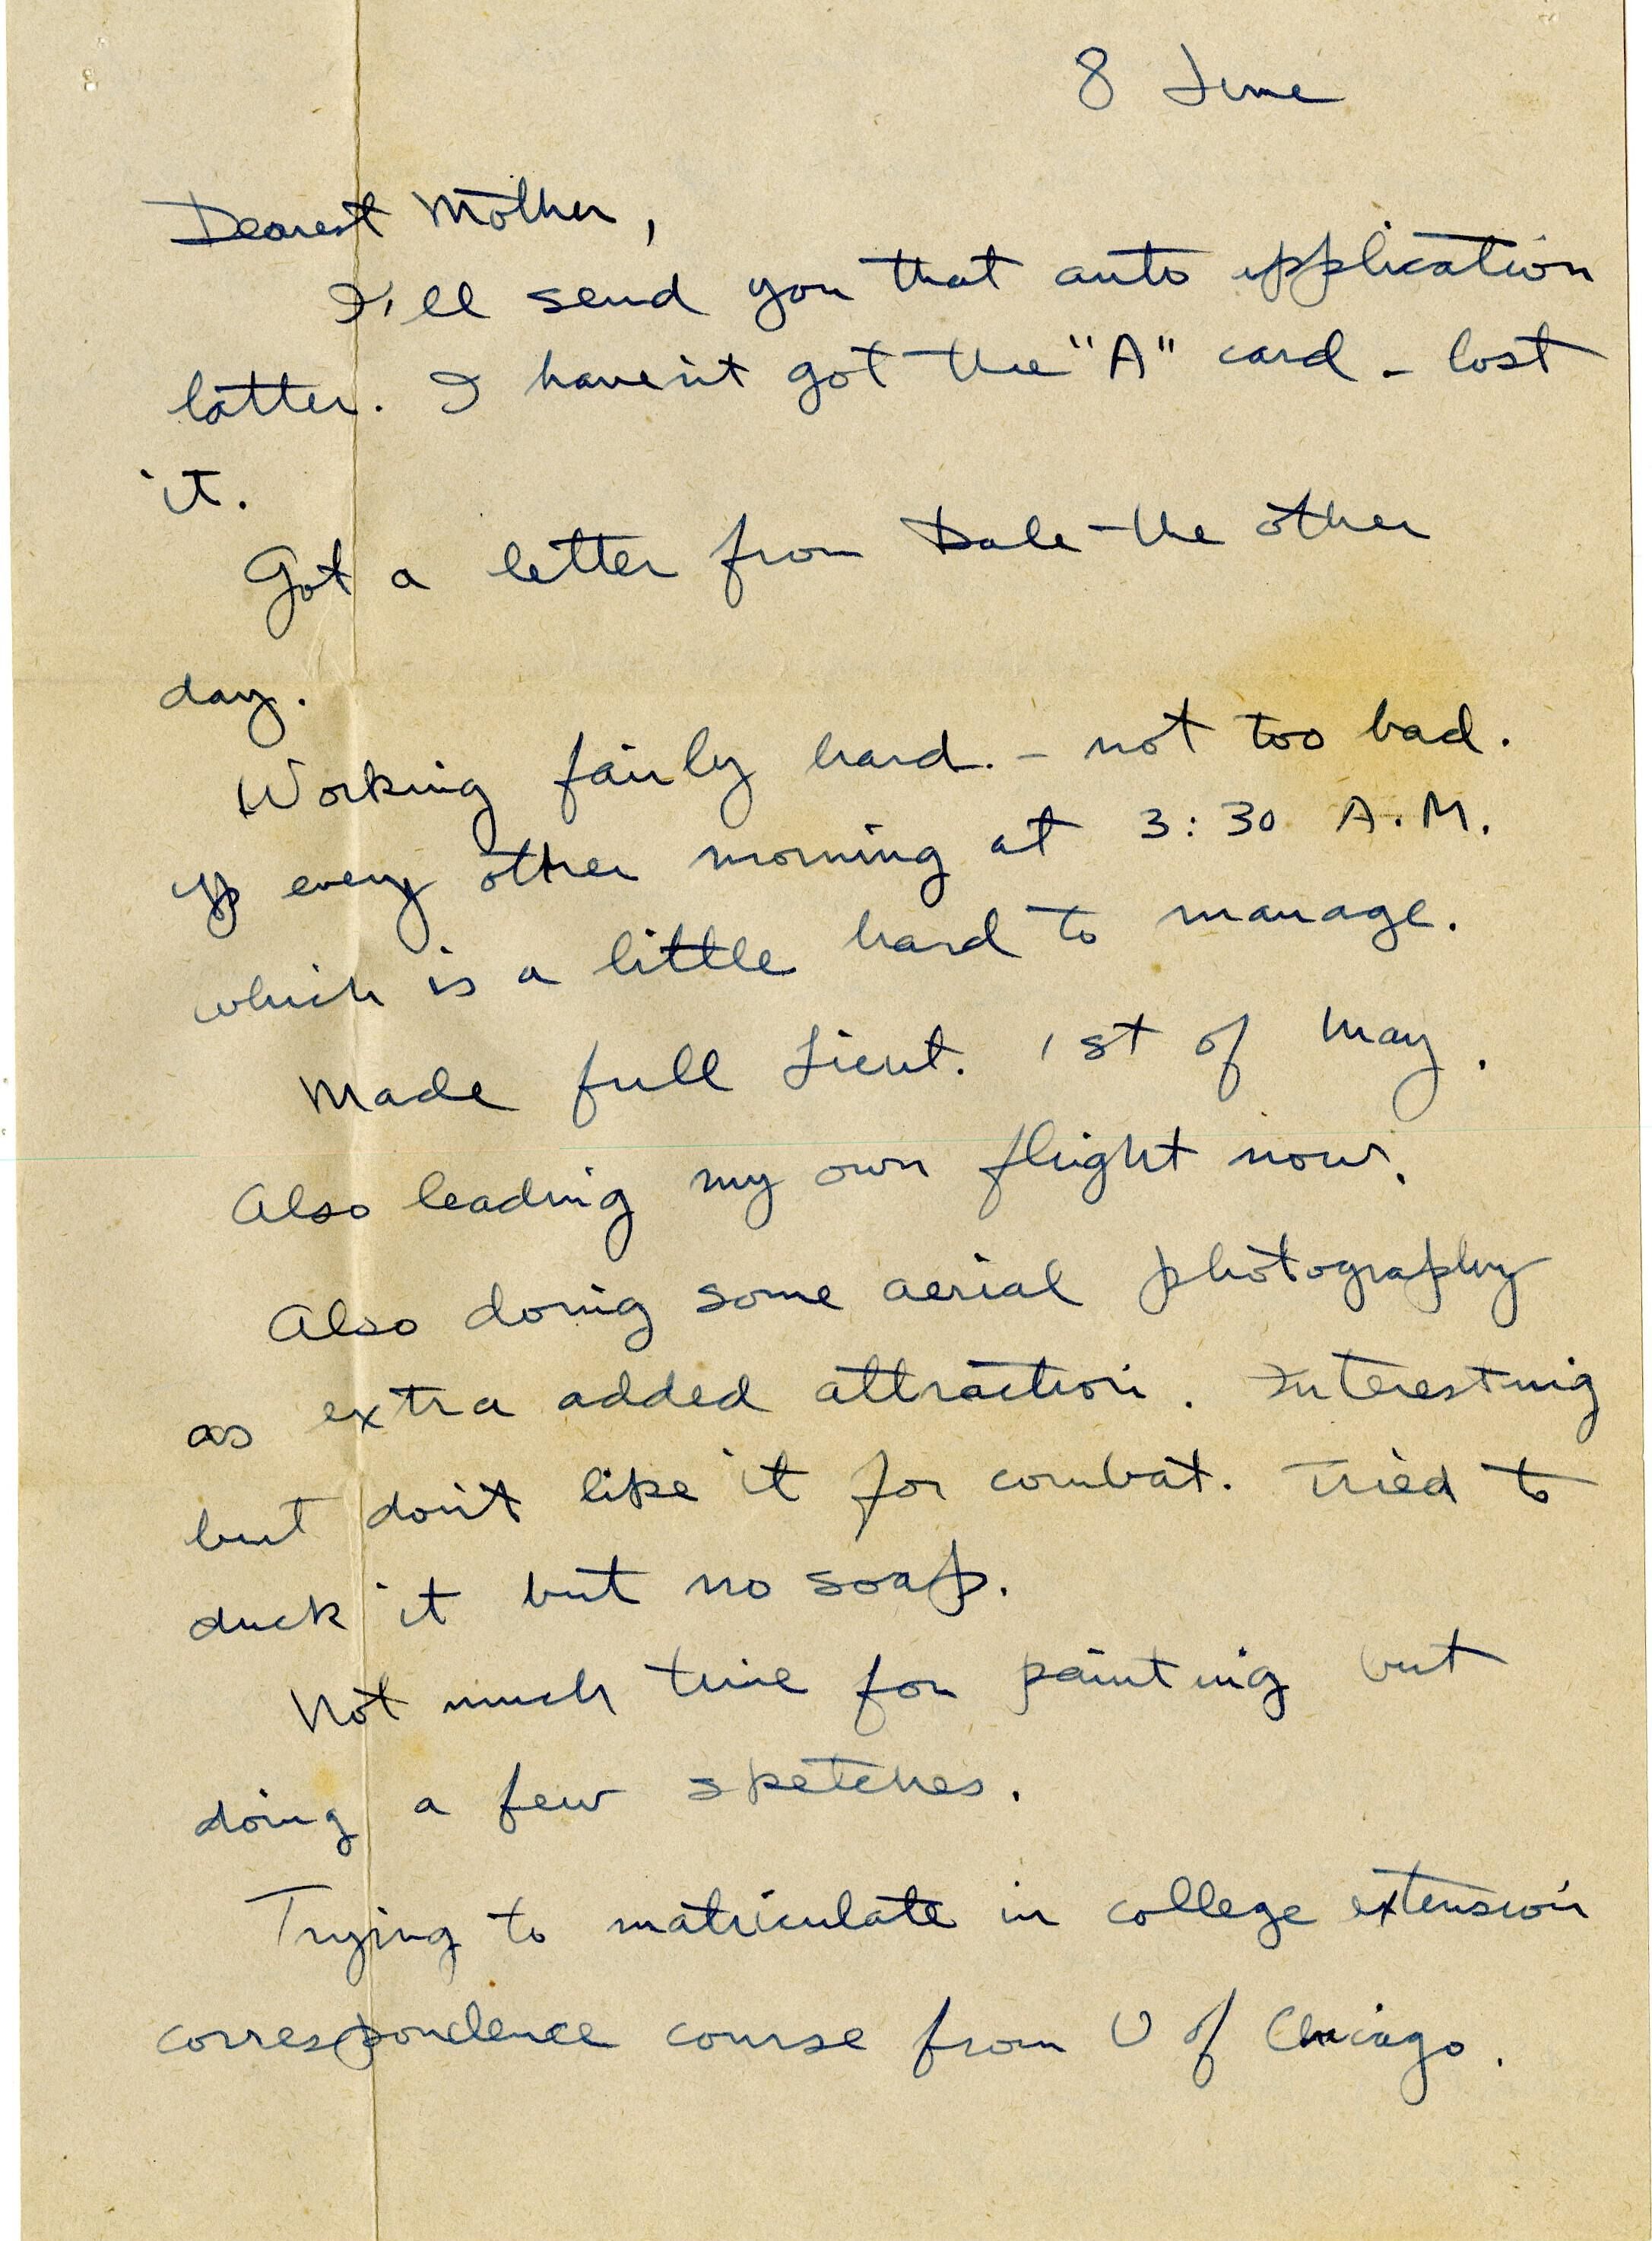 8 June
Dearest Mother,
I'll send you that auto application
latter. I haven't got the "A" card - lost
it.
Got a letter from Dale the other
day.
Working fairly hard. - not too bad.
Up every other morning at 3:30 A.M.
which is a little hard to manage.
Made full Lieut. 1st of May.
Also leading my own flight now.
Also doing some aerial photography
as extra added attraction. Interesting
but don't like it for combat. Tried to
duck it but no soap.
Not much time for painting but
doing a few sketches.
Trying to matriculate in college extension
correspondence course from U of Chicago.